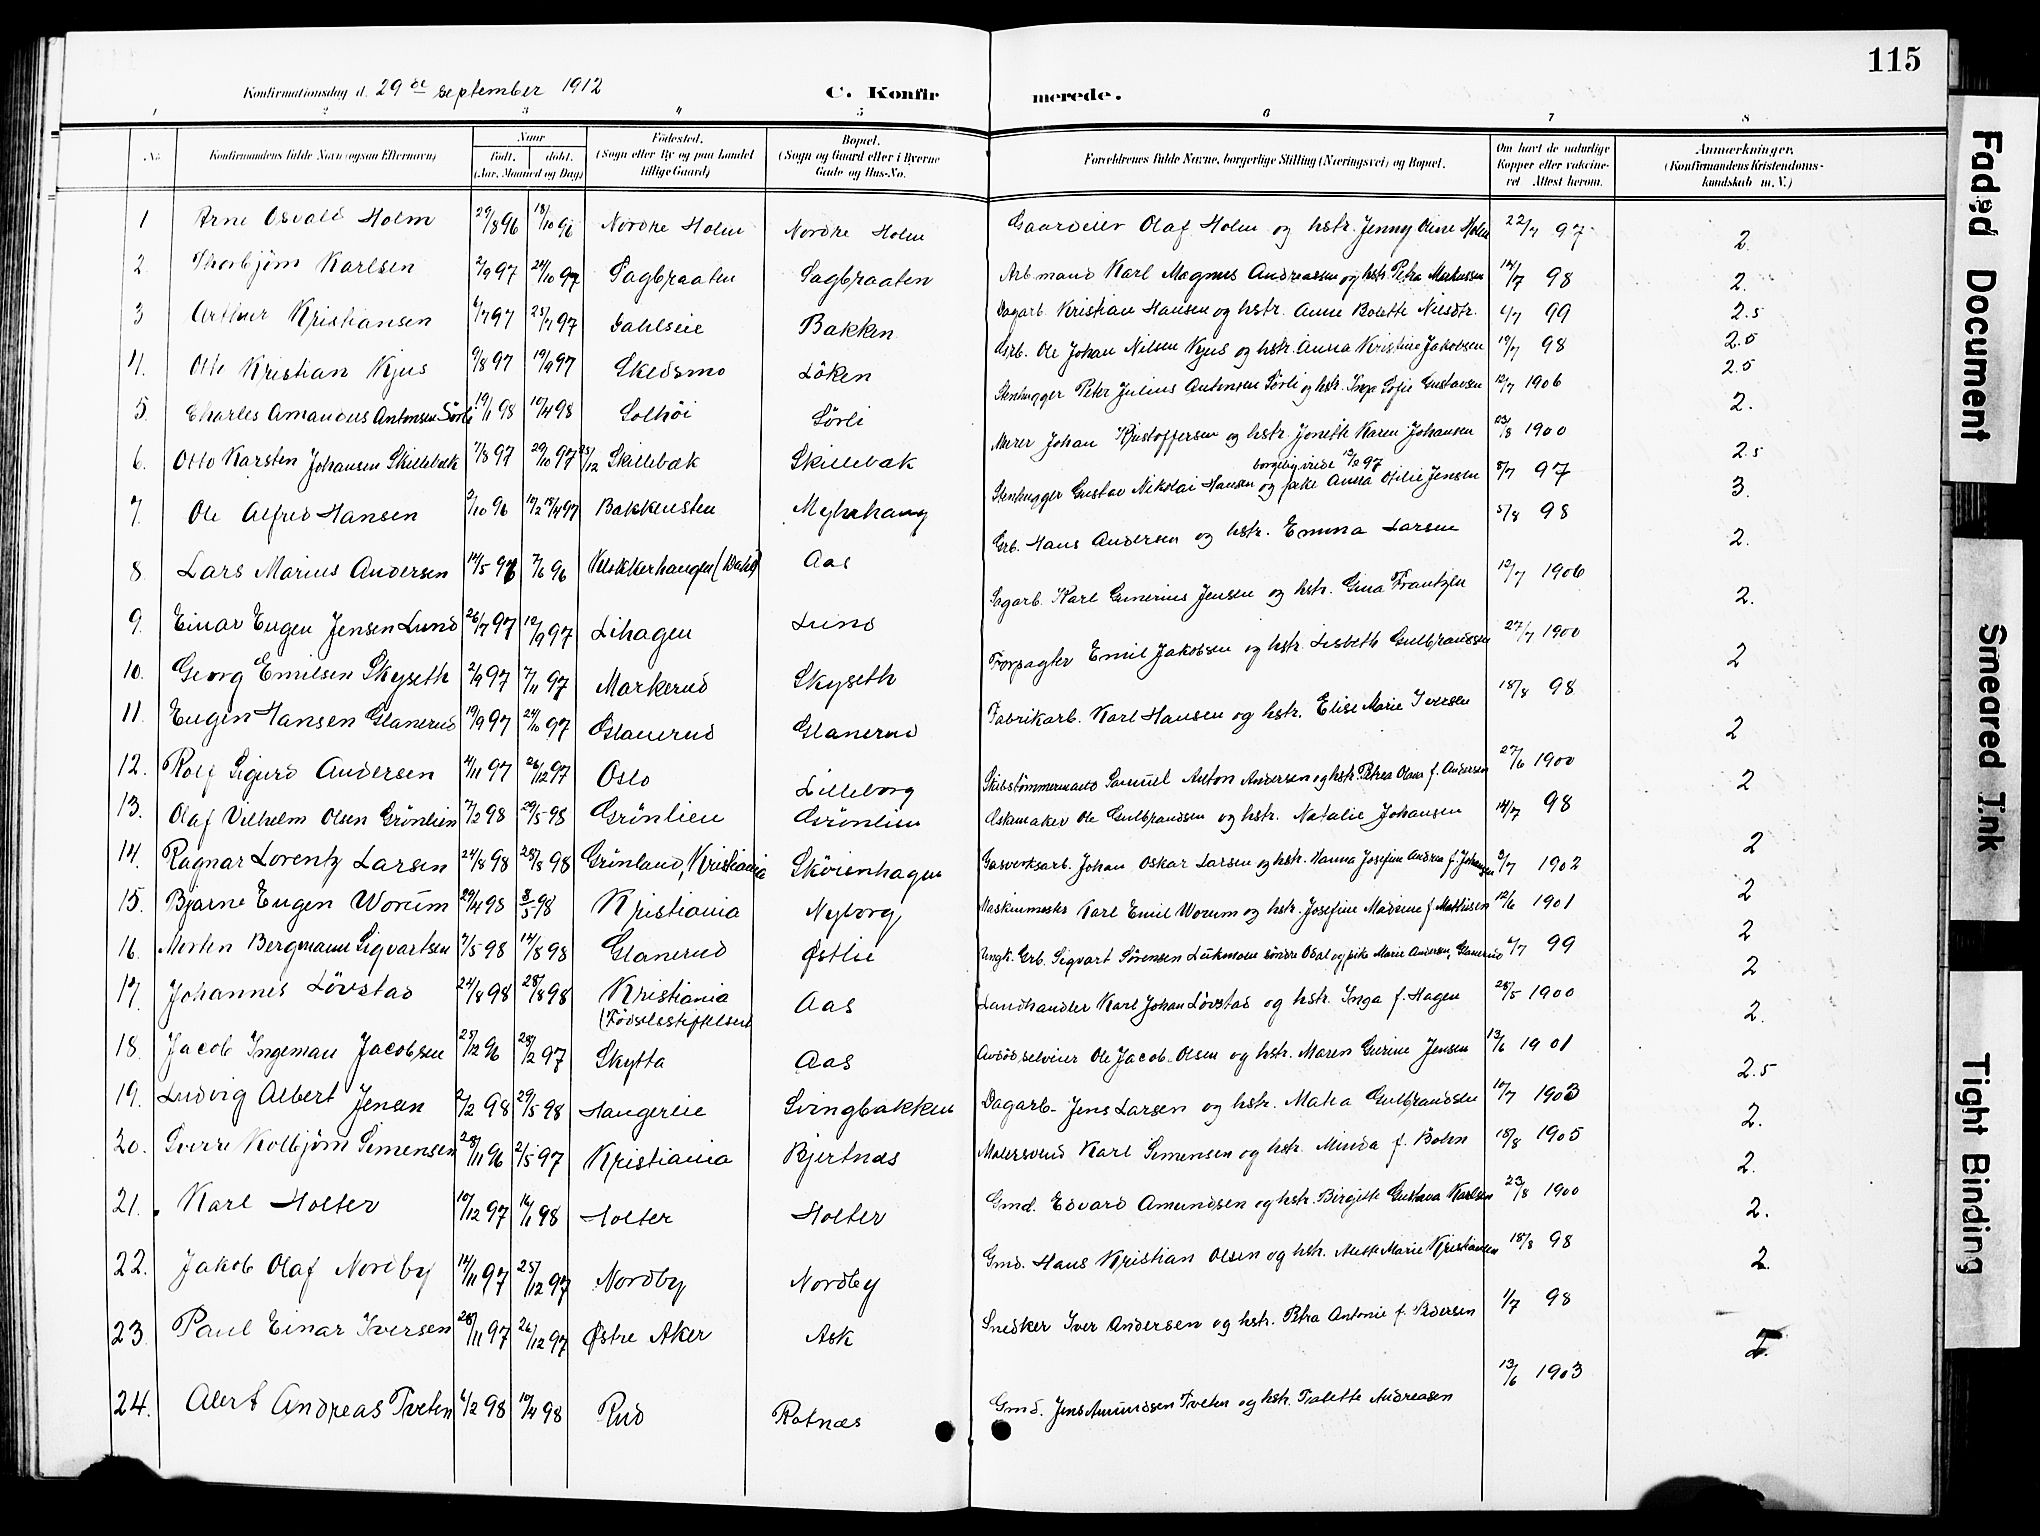 115
Konfirmationsdag d. 29de september 1912
C. Konfirmerede.
1 2 3 4 5 6 7 8
No. Konfirmandens fulde Navn (ogsaa Efternavn) Naar født. døbt. (Aar, Maaned og Dag) Fødested. (Sogn eller By og paa Landet tillige Gaard) Bopæl. (Sogn og Gaard eller i Byerne Gade og Hus-No. Forældrenes fulde Navne, borgerlige Stilling (Næringsvei) og Bopæl. Om havt de naturlige Kopper eller vakcineret Attest herom. Anmerkninger. (Konfirmandens Kristendomskundskab m. V.)
1 Arne Osvald Holm 29/8 96 18/10 96 Nordre Holm Nordre Holm Gaardeier Olaf Holm og hstr. Jenny Oline Holm 22/7 97 2.
2 Thorbjørn Karlsen 2/9 97 24/10 97 Sagbraaten Sagbraaten Arb.mand Karl Magnus Andreassen og hstr. Petra Markussen 14/7 98 2.
3 Arthur Kristiansen 6/7 97 25/7 97 Dahlseie Bakken Dagarb. Kristian Hansen og hstr. Anne Bolette Nilsdtr. 6/7 99 2.5
4. Otto Kristian Kjus 9/8 97 19/9 97 Skedsmo Løken Grb. Ole Johan Nilsen Kjus og hstr. Anna Kristine Jakobsen 19/7 98 2.5
5. Charles Amandus Antonsen Sørli 19/1 98 10/4 98 Solhøi Sørli Stenhugger Peter Julius Antonsen Sørli og hstr. Inga Sofie Gustavsen 12/7 1906 2.5
6. Otto Karsten Johansen Skillebæk 7/8 97 29/10 97 25/12 Skillebæk Skillebæk Murer Johan Kristoffersen og hstr. Jonette Karen Johansen 23/8 1900 2.
7. Ole Alfred Hansen 2/10 96 10/2 18/4 97 Bakkensten Myhrhaug Stenhugger Gustav Nikolai Hansen og pike Anna Otilie Jensen borgelig viede 13/2 97 8/7 97 2.5
8. Lars Marius Andersen 14/5 96 7/6 96 Klokkerhaugen (Dahl) Aas Grb. Hans Andersen og hstr. Emma Larsen 5/8 98 3.
9. Einar Eugen Jensen Lund 26/7 97 12/9 97 Lihagen Lund Sagarb. Karl Gunerius Jensen og hstr. Gina Frantzen 12/7 1906 2.
10. Georg Emilsen Skyseth 2/9 97 7/11 97 Markerud Skyseth Forpagter Emil Jakobsen og hstr. Lisbeth Gulbrandsen 27/7 1900 2.
11. Eugen Hansen Glanerud 19/9 97 24/10 97 Glanerud Glanerud Fabrikarb. Karl Hansen og hstr. Elise Marie Iversen 18/8 98 2
12. Rolf Sigurd Andersen 4/11 97 26/12 97 Oslo Lilleborg Skibstømmermand Samuel Anton Andersen og hstr. Petrea Olava f. Andersen 27/6 1900 2
13. Olaf Vilhelm Olsen Grønlien 7/2 98 29/5 98 Grønlien Grønlien Æskemaker Ole Gulbrandsen og hstr. Natalie Johansen 14/7 98 2
14. Ragnar Lorentz Larsen 24/8 98 28/8 98 Grønland, Kristiania Skøienhagen Gasverksarb. Johan Oskar Larsen og hstr. Hanna Josefine Andrea f. Johansen 9/7 1902 2
15. Bjarne Eugen Worum 29/4 98 8/5 98 Kristiania Nyborg Maskinmester Karl Emil Worum og hstr. Josefine f. Mathisen 12/6 1901 2
16. Morten Bergmann Sigvartsen 7/5 98 14/8 98 Glanerud Østlie Ungk. Grb. Sigvart Sørensen søndre Odal og pike Marie Andersen, Glanerud 6/7 99 2
17. Johannes Løvstad 24/8 98 28/8 98 Kristiania (Fødselsstiftelsen) Aas Landhandler Karl Johan Løvstad og hstr. Inga f. Hagen 28/5 1900 2
18. Jacob Ingeman Jacobsen 25/12 96 28/2 97 Skytta Aas Avdød selveier Ole Jacob Olsen og hstr. Maren Gurine Jensen 13/6 1901 2.
19. Ludvig Albert Jensen 2/2 98 29/5 98 Haugerlie Svingbakken Dagarb. Jens Larsen og hstr. Matea Gulbrandsen 10/7 1903 2.5
20. Sverre Kolbjørn Simensen 28/11 96 2/5 97 Kristiania Bjertnæs Malersvend Karl Simensen og hstr. Minda f. Bohn 18/8 1905 2.
21. Karl Holter 10/12 97 16/1 98 Holter Holter Gmd. Edvard Amundsen og hstr. Birgitte Gustava Karlsen 23/8 1900 2.
22. Jakob Olaf Nordby 14/11 97 25/12 97 Nordby Nordby Gmd. Hans Kristian Olsen og hstr. Anette Marie Kristiansen 18/8 98 2.
23. Paul Einar Iversen 28/11 97 26/12 97 Østre Aker Ask Snedker Iver Andersen og hstr. Petra Antonie f. Pedersen 1/7 98 2.
24. Alert Andreas Tveten 6/2 98 10/4 98 Rud Rotnæs Gmd. Jens Amundsen Tveten og hstr. Talette Andreasen 13/6 1903 2.
Faded Document
Smeared Ink
Tight Binding